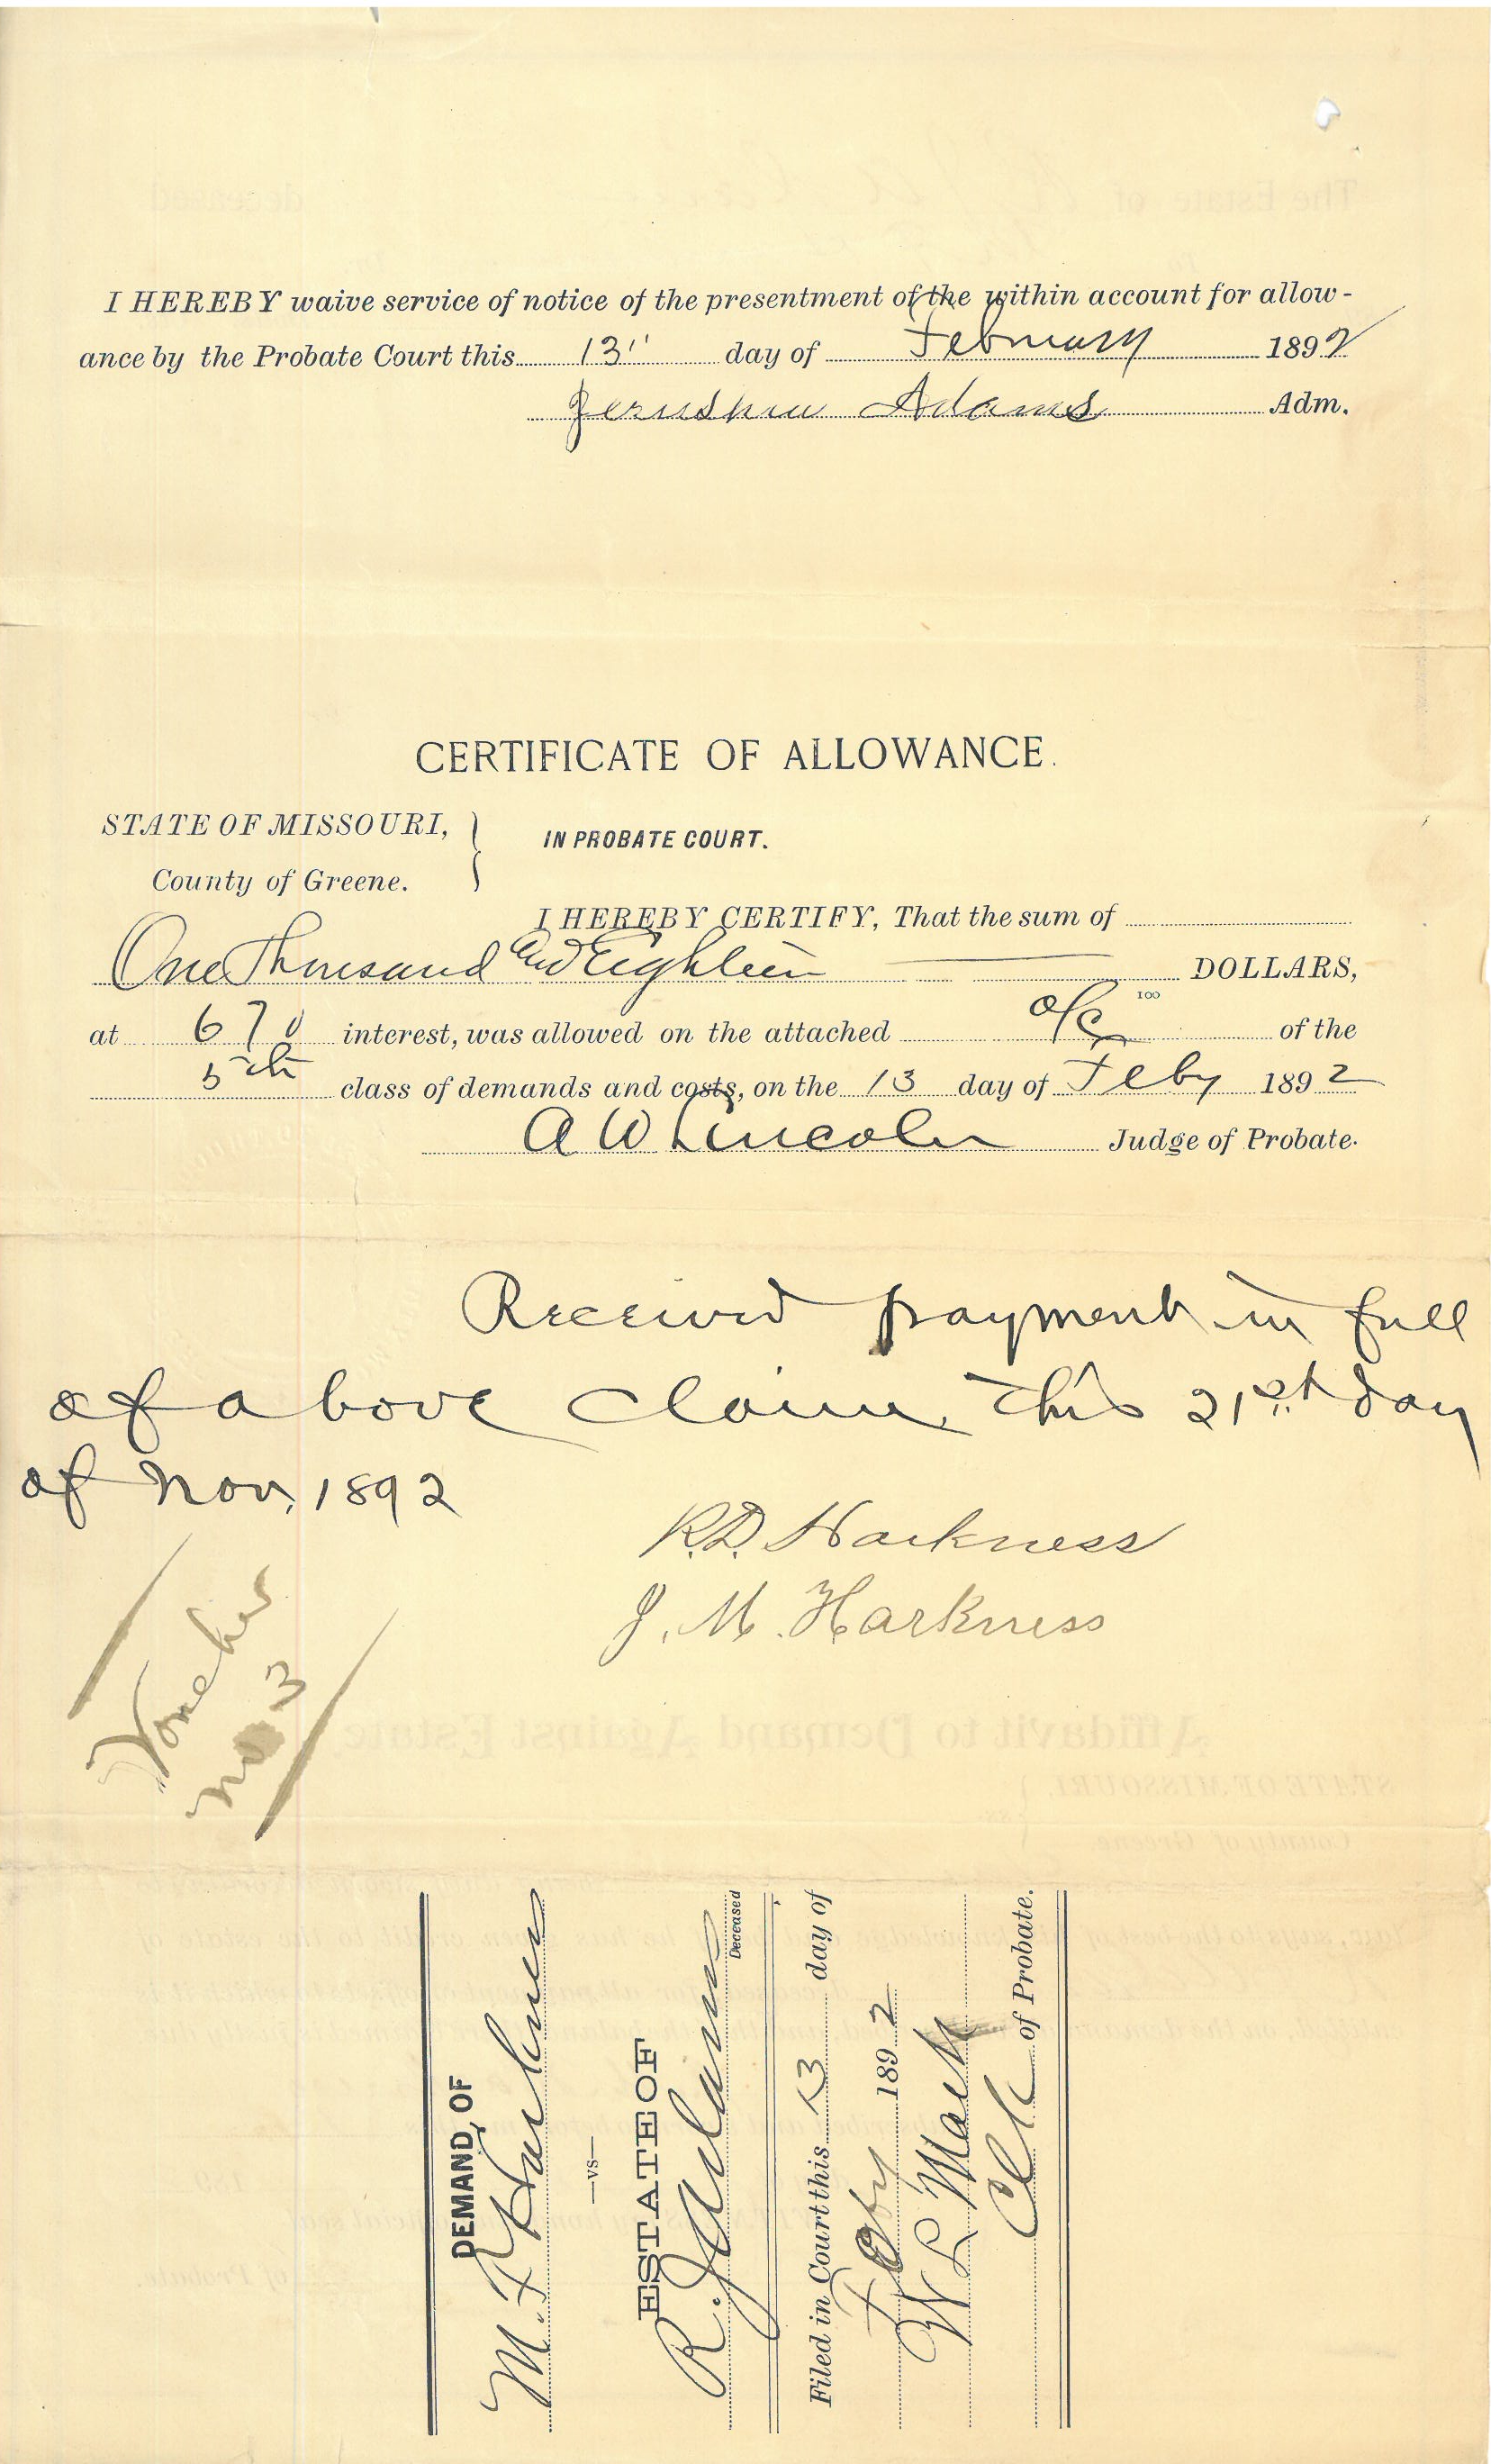 I HEREBY waive service of notice of the presentment of the within account for allow-
ance by the Probate Court this 13" day of February 1892
Jerusha Adams Adm.
CERTIFICATE OF ALLOWANCE.
STATE OF MISSOURI,
County of Greene.
IN PROBATE COURT.
I HEREBY CERTIFY, That the sum of
One Thousand and Eighteen DOLLARS,
100
at 6 % interest, was allowed on the attached a/c of the
5th class of demands and costs, on the 13 day of Feby 1892
A W Lincoln Judge of Probate.
Received payment in full
of above claim this 21st day
of Nov. 1892
R.D. Harkness
J. M. Harkness
Voucher
no 3
DEMAND, OF
M. Harkness
—vs—
ESTATE OF
R. J. Adams
Deceased
Filed in Court this 13 day of
Feby 1892
W L Mack
Clk of Probate.
The Estate of deceased
Affidavit to Demand Against Estate
STATE OF MISSOURI,
County of Greene